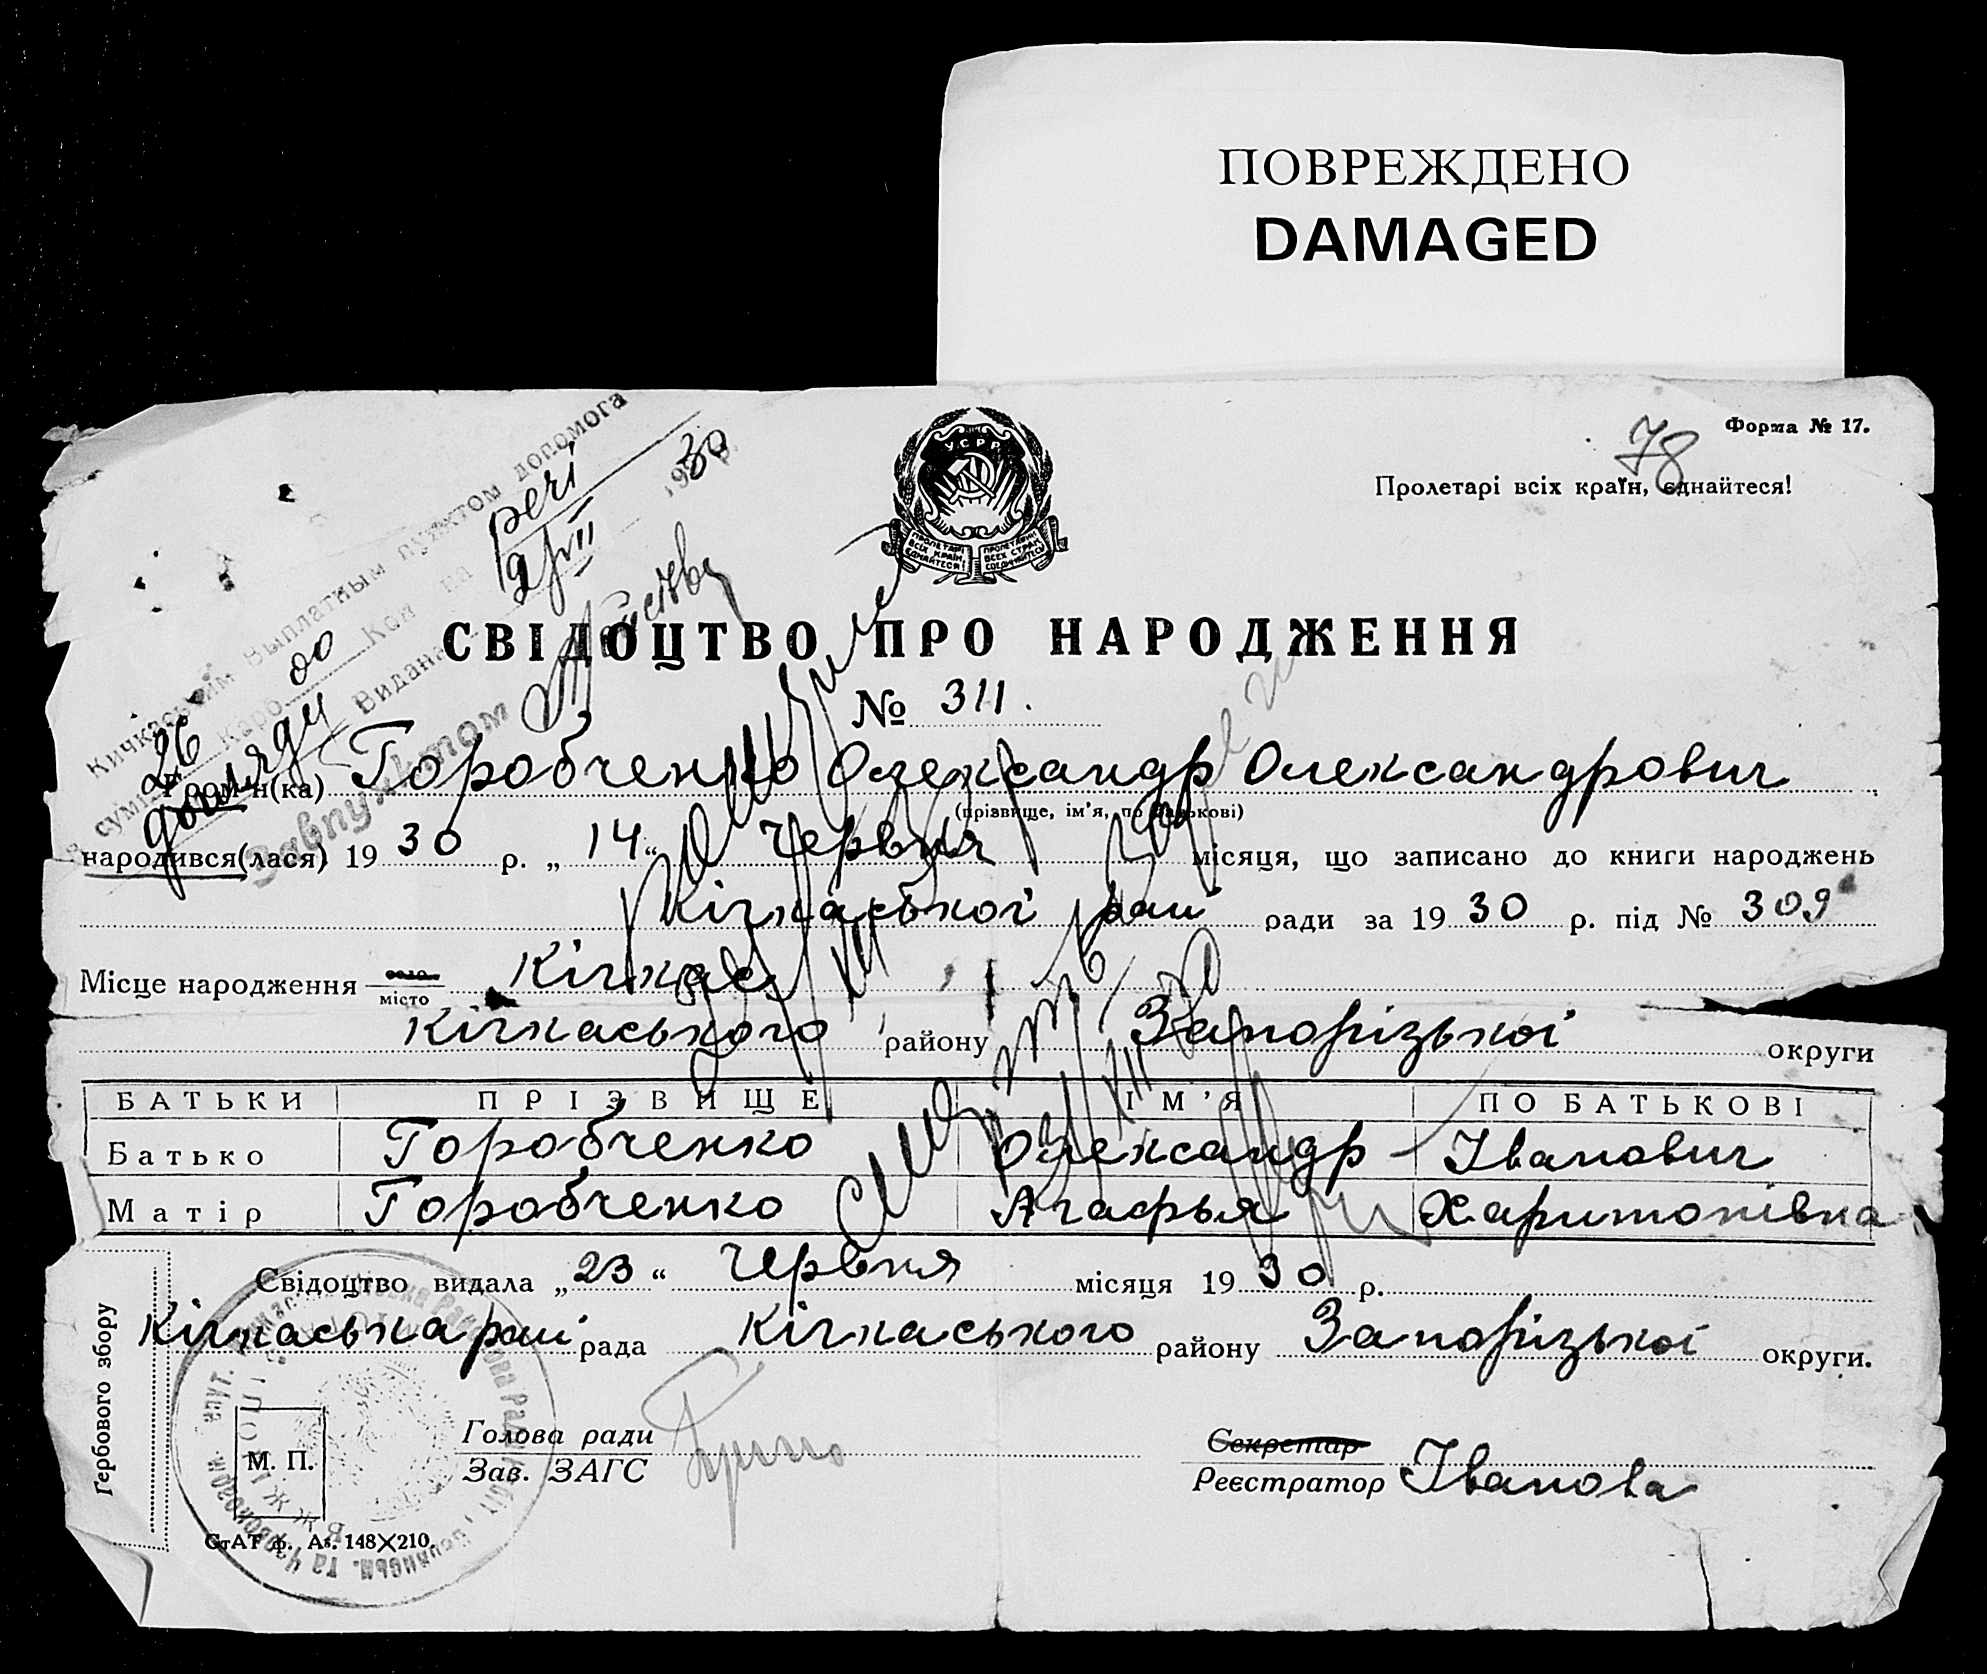 ПОВРЕЖДЕНО
DAMAGED
Форма № 17.
78
Пролетарі всіх країн, єднайтеся!
У.С.Р.Р.
ПРОЛЕТАРІ ВСІХ КРАЇН, ЄДНАЙТЕСЯ!
ПРОЛЕТАРИИ ВСЕХ СТРАН, СОЕДИНЯЙТЕСЬ!
Кичкаським Выплатным пунктом допомога
речі
26 Карб. 00 Коп на
догляду Видана 19 30 р.
Завпунктом
СВІДОЦТВО ПРО НАРОДЖЕННЯ
№ 311.
Гром-н(ка) Горобченко Олександр Олександрович
(прізвище, ім'я, по батькові)
народився(лася) 19 30 р. „ 14 “ Червня місяця, що записано до книги народжень
Кічкаської рай ради за 19 30 р. під № 309
Місце народження село місто Кічкас
Кічкаського району Запорізької округи
БАТЬКИ ПРІЗВИЩЕ ІМ'Я ПО БАТЬКОВІ
Батько Горобченко Олександр Іванович
Матір Горобченко Агафья Харитонівна
Свідоцтво видала „ 23 “ Червня місяця 19 30 р.
Кічкаська рай рада Кічкаського району Запорізької округи.
Гербового збору
М. П.
Голова ради
Зав. ЗАГС
Секретар
Реєстратор Іванова
СтАТ ф. А5. 148×210.